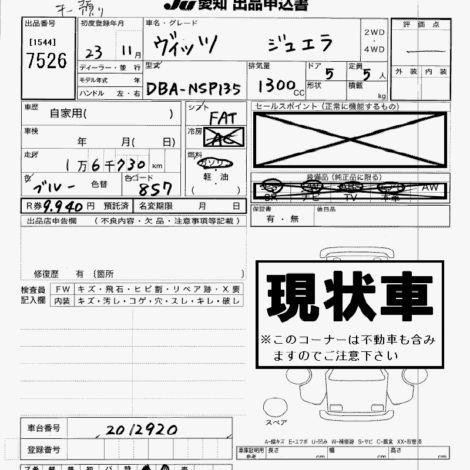 JU 愛知 出品申込書
出品番号 初度登録年月 車名・グレード 2WD ・ 4WD 評価点
[1544]
7526
23年 11月 ヴィッツ ジュエラ
ディーラー・並行 型式 排気量 ドア 定員 外装 内装
モデル年式 年 DBA-NSP135 1300 CC 形状 5 5人
ハンドル 左・右 積載量 kg
車歴 自家用( ) シフト FAT セールスポイント(正常に機能するもの)
車検 年 月(日) 冷房 AC
走行 1万6千730km 燃料 ガソリン
軽油 装備品(純正品に限る)
色 ブルー 色替 色コード 857 SR ナビ TV 本革 AW
R券 9,940円 預託済 名変期限 月 日 保証書 有・無 後日品
出品店申告欄 (不良内容・欠品・注意事項等記載)
修復歴 有(箇所
検査員記入欄 FW キズ・飛石・ヒビ割・リペア跡・X要
内装 キズ・汚レ・コゲ・穴・スレ・キレ・破レ
現状車
※このコーナーは不動車も含み
ますのでご注意下さい
スペア
車台番号 2012920
登録番号
A-線キズ E-エクボ U-凹み W-補修跡 S-サビ C-腐食 XX-交換済
車庫証明用参考欄 長さ cm 幅 cm 高さ cm